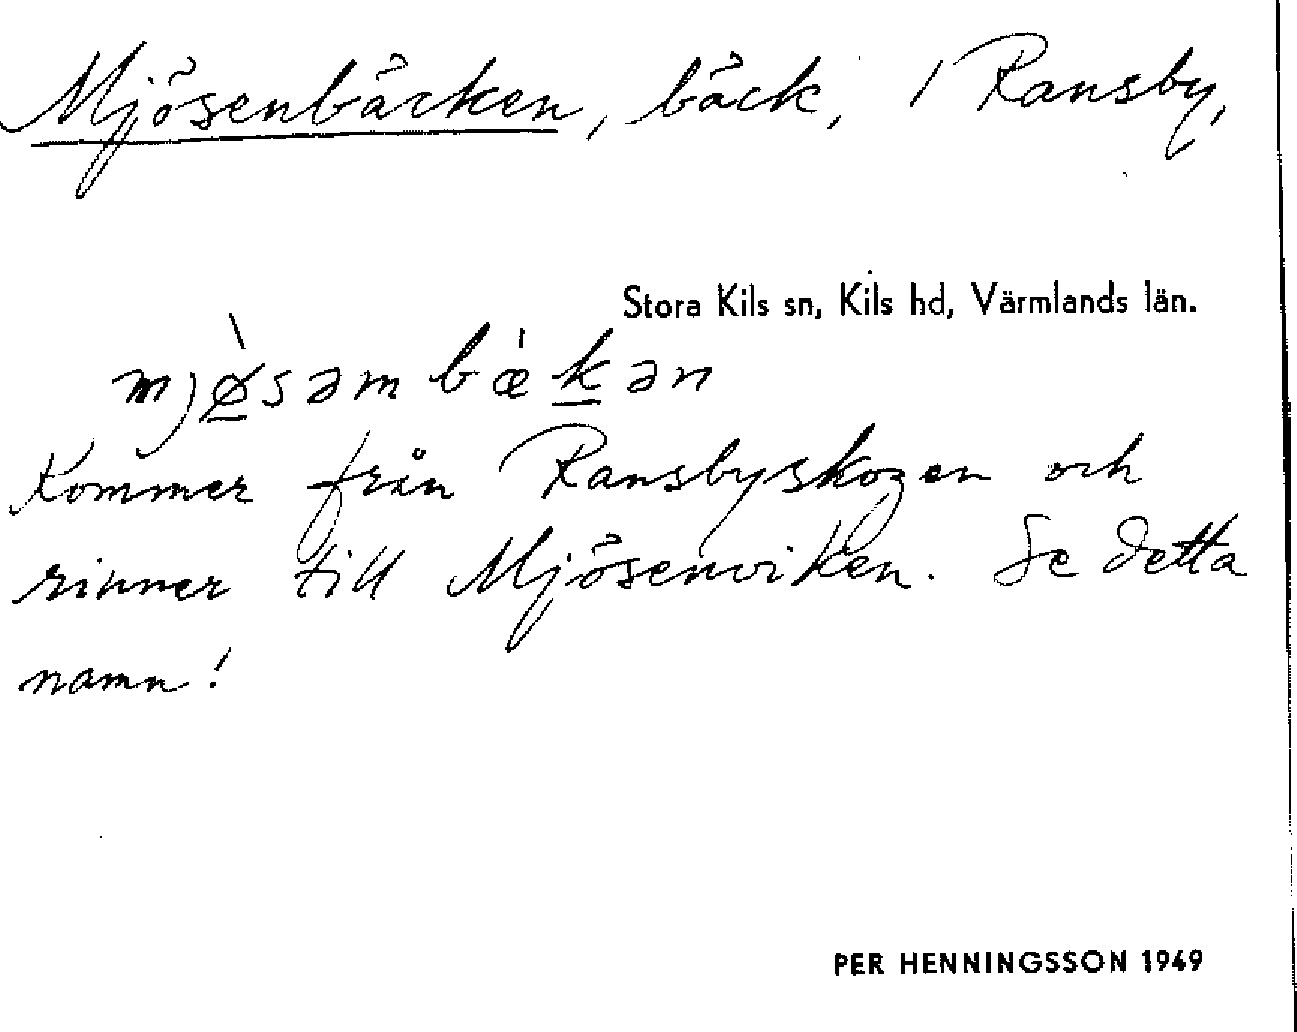 Mjösenbäcken, bäck, i Ransby,
Stora Kils sn, Kils hd, Värmlands län.
mjø̱̀səmbæ̇ḵən
Kommer från Ransbyskogen och
rinner till Mjösenviken. Se detta
namn!
PER HENNINGSSON 1949